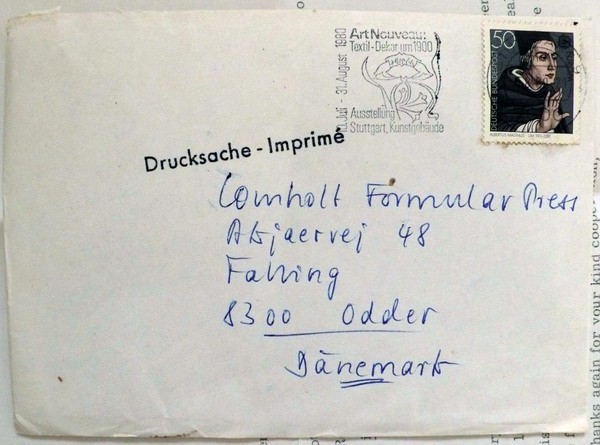 Art Nouveau:
Textil-Dekor um 1900
- 31. August 1980
Ausstellung
Stuttgart, Kunstgebäude
50
DEUTSCHE BUNDESPOST
ALBERTUS MAGNUS
Drucksache - Imprimé
Lomholt Formular Press
Abjaervej 48
Falling
8300 Odder
Dänemark
banks again for your kind cooper